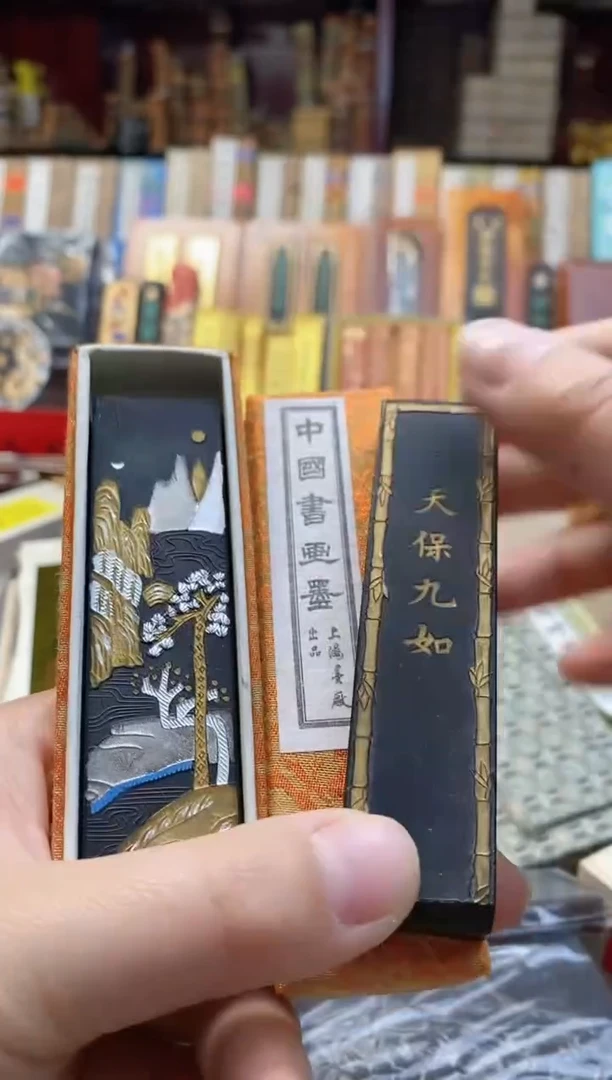 中國書画墨
上海墨厰
出品
天保九如